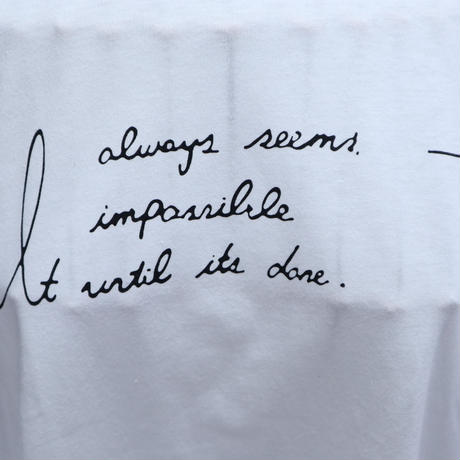 always seems.
impossible
It until its done.